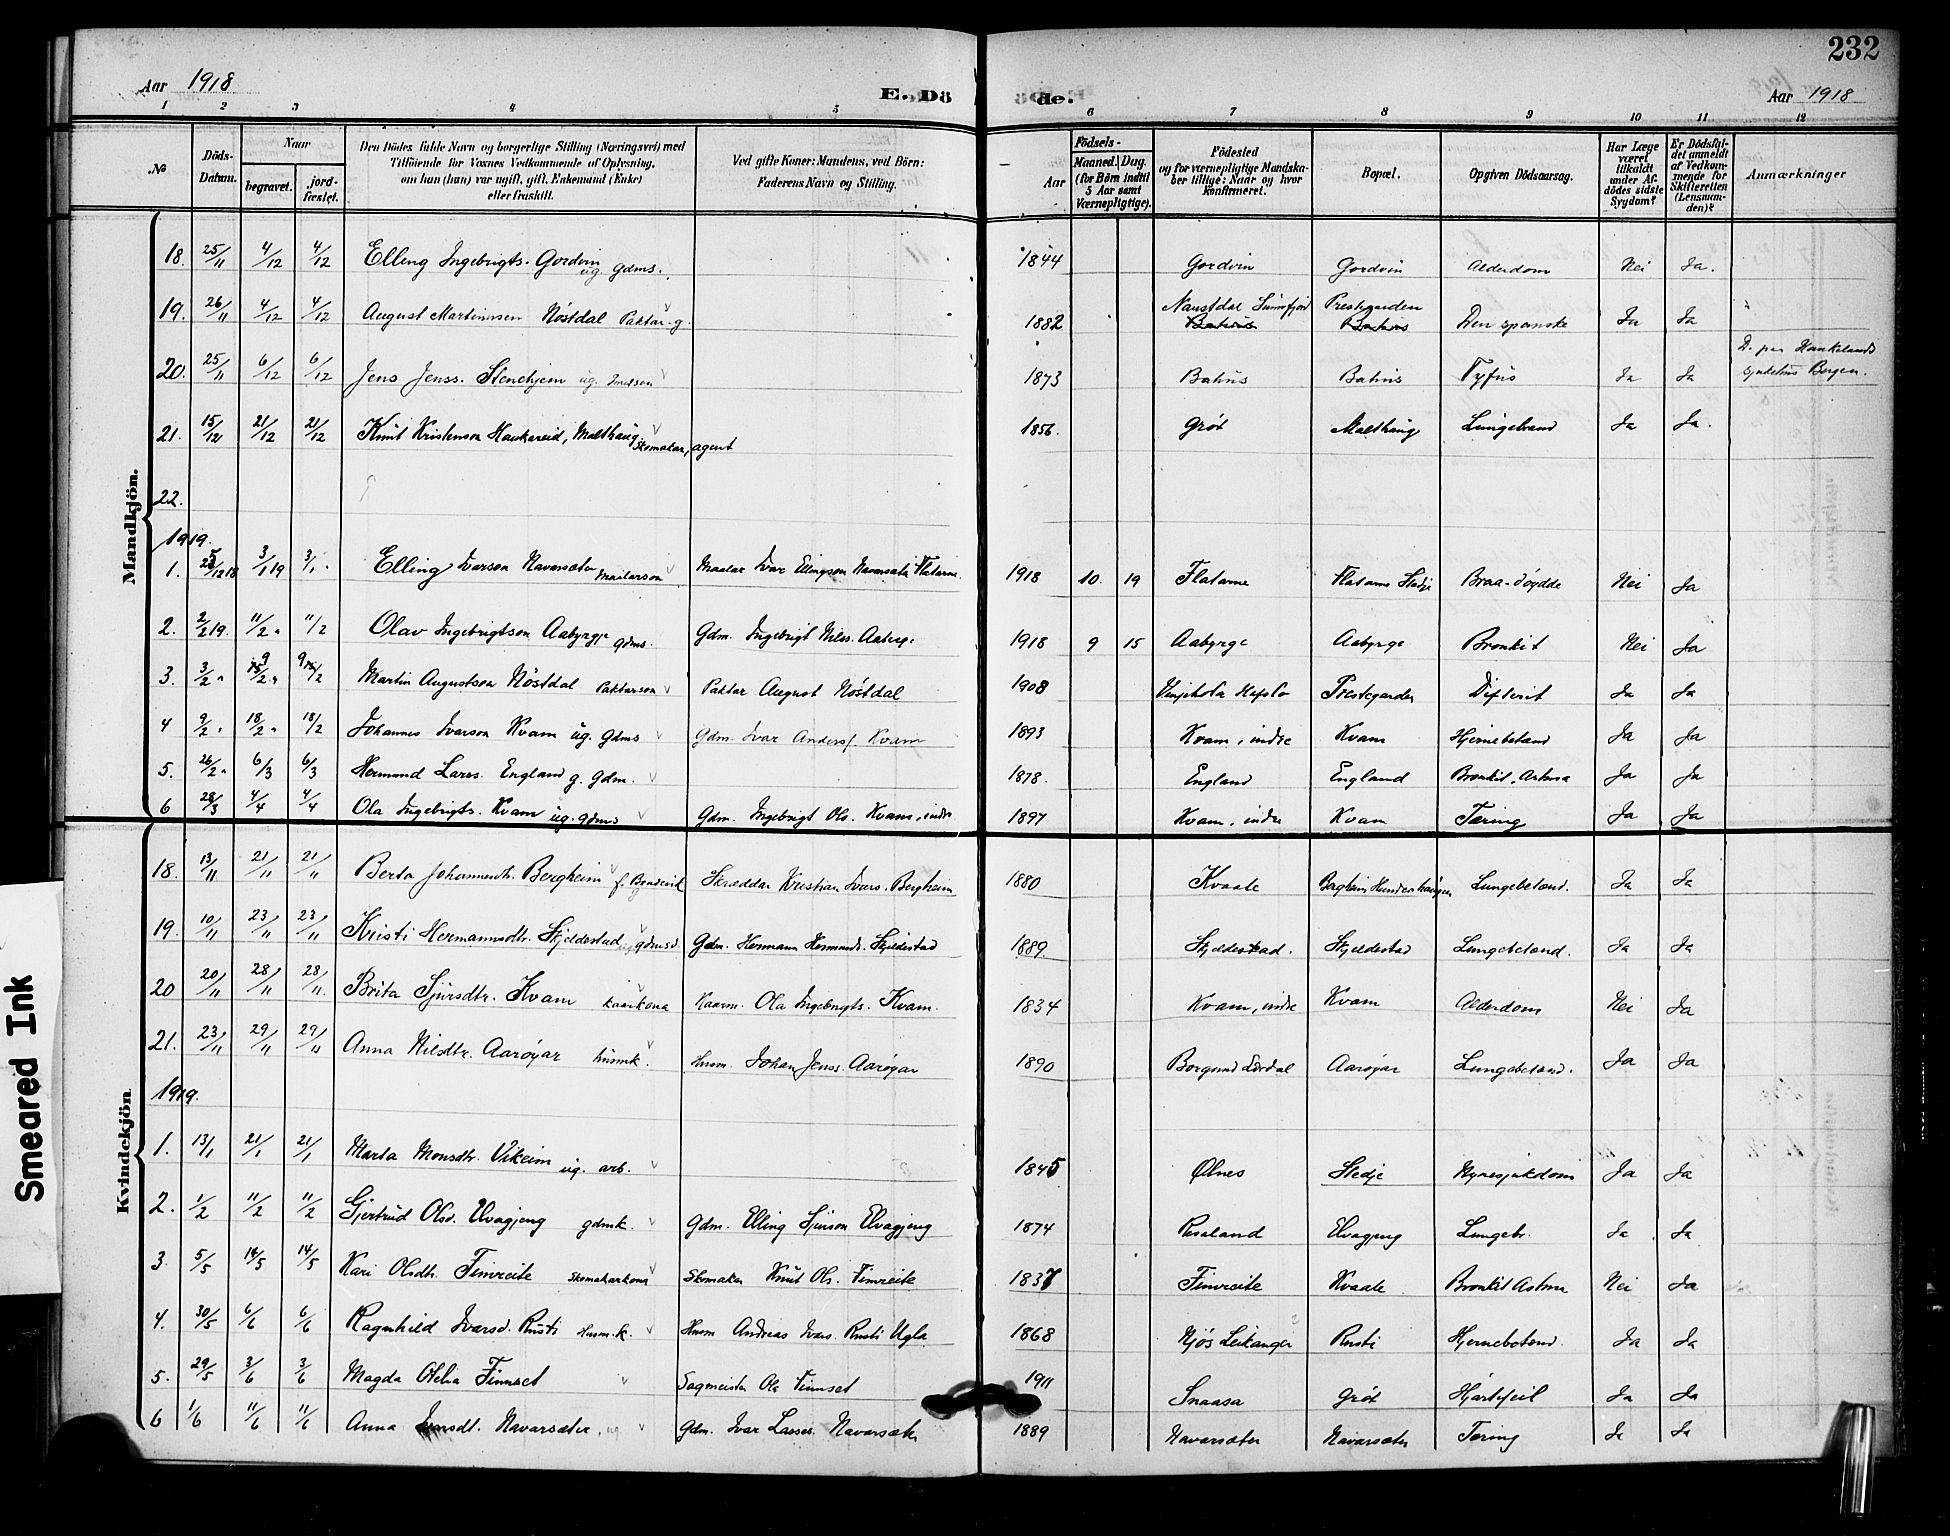 232
Aar 1918 E. Döde. Aar 1918
1 2 3 4 5 6 7 8 9 10 11 12
No Döds-Datum. Naar begravet. jordfæstet. Den Dödes fulde Navn og borgerlige Stilling (Næringsvei) med Tilföiende for Voxnes Vedkommende af Oplysning, om han (hun) var ugift, gift, Enkemand (Enke) eller fraskilt. Ved gifte Koner: Mandens, ved Börn: Faderens Navn og Stilling. Aar Födsels- Maaned. Dag. (for Börn indtil 5 Aar samt Værnepligtige). Födested og for værnepligtige Mandskaber tillige: Naar og hvor Konfirmeret. Bopæl. Opgiven Dödsaarsag. Har Læge været tilkaldt under Afdödes sidste Sygdom? Er Dödsfaldet anmeldt af Vedkommende for Skifteretten (Lensmanden)? Anmærkninger
Mandkjön.
18. 25/11 4/12 4/12 Elling Ingebrigts. Gordvin ug. gdms. 1844 Gordvin Gordvin Alderdom Nei Ja.
19. 26/11 4/12 4/12 August Martinussen Nöstdal Paktar g. 1882 Naustdal Sunnfjord Prestegarden Den spanske Ja Ja
20. 25/11 6/12 6/12 Jens Jenss. Stenehjem ug. 1873 Bahus Bahus Tyfus Ja Ja D. paa Haukelands sjukehus Bergen.
21. 15/12 21/12 21/12 Knut Kristenson Haukareid, Malthaug Skomakar, agent 1856. Gröt Malthaug Lungebrand Ja Ja.
22.
1919.
1. 25/12 18 3/1 19 3/1. Elling Ivarson Navarsæter Maalarson Maalar Ivar Ellingson Navarsæter Flatarne 1918 10. 19 Flatarne Flatarne Stedje Braa-döydde Nei Ja
2. 2/2 19. 11/2 " 11/2 Olav Ingebrigtson Aabyrge gdms. Gdm. Ingebrigt Nilss. Aaberge 1918 9 15 Aabyrge Aabyrge Bronkit Nei Ja
3. 3/2 " 9/2 " 9/2 Martin Augustson Nöstdal Paktarson Paktar August Nöstdal 1908 Hafslo Prestegarden Difterit Ja Ja
4 9/2 " 18/2 " 18/2 Johannes Ivarson Kvam ug. gdms Gdm. Ivar Anders. Kvam 1893 Kvam, indre Kvam Hjernebetænd Ja Ja
5. 26/2 " 6/3 6/3 Hermund Larss. England g. gdm. 1878. England England Bronkit, Astma Ja Ja
6 28/3 4/4 4/4 Ola Ingebrigts. Kvam ug. gdms Gdm. Ingebrigt Ols. Kvam, indre 1897 Kvam, indre Kvam Tæring Ja Ja
Kvindekjön
18. 13/11 21/11 21/11 Berta Johannesdtr. Bergheim f. Bondevik Skræddar Kristian Ivars. Bergheim 1880 Kvaale Bergheim Hundershaugen Lungebetænd. Ja Ja
19. 10/11 23/11 23/11 Kristi Hermannsdtr. Skjeldestad ug gdmsd. Gdm. Hermann Hermunds. Skjeldestad 1889. Skjeldestad. Skjeldestad Lungebetænd. Ja Ja
20 20/11 28/11 28/11. Brita Sjursdtr. Kvam kaarkona Kaarm. Ola Ingebrigts. Kvam. 1834 Kvam, indre Kvam Alderdom Nei Ja
21. 23/11 29/11 29/11 Anna Nilsdtr. Aaröyar husmk. Husm. Johan Jenss. Aaröyar 1890 Borgund Lærdal Aaröyar Lungebetænd. Ja Ja
1919.
1. 13/1 21/1 21/1 Marta Monsdtr. Vikeim ug. arb. 1845 Ølnes Stedje Nyresjukdom Ja Ja
2. 1/2 11/2 11/2 Gjertrud Olsd. Elvagjeng gdmk. Gdm. Elling Sjurson Elvagjeng 1874 Rusaland Elvagjeng Lungebr. Ja Ja
3. 5/5 14/5 14/5 Kari Olsdtr. Timreite Skomakarkona Skomaker Knut Ols. Timreite 1837 Timreite Kvaale Bronkit Astma Nei Ja
4. 30/5 6/6 6/6 Ragnhild Ivarsd. Rusti Husm.k. Husm Andreas Ivars. Rusti Ugla 1868 Njös Leikanger Rusti Hjernebetænd. Ja Ja
5. 29/5 3/6 3/6 Magda Otelia Finnset Sagmeister Ola Finnset 1911 Snaasa Gröt Hjartefeil Ja Ja
6 1/6 11/6 11/6 Anna Ivarsdt. Navarsæter ug Gdm. Ivar Lasses. Navarsæter 1889 Navarsæter Navarsæter Tæring Ja Ja
Smeared Ink